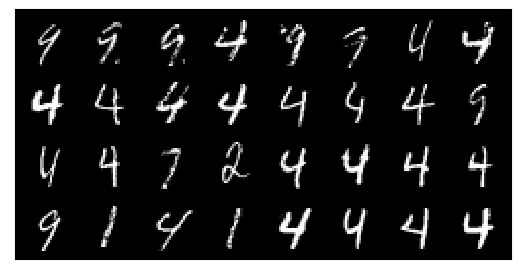 9 9 9 4 9 7 4 4
4 4 4 4 4 4 4 9
4 4 7 2 4 4 4 4
9 1 4 1 4 4 4 4